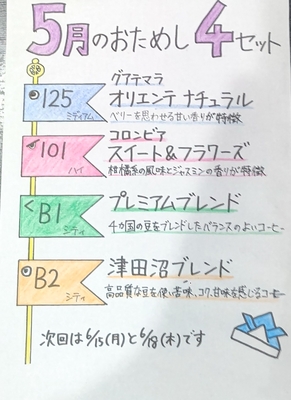 5月のおためし4セット
グアテマラ
125 オリエンテ ナチュラル
ミディアム ベリーを思わせる甘い香りが特徴
コロンビア
101 スイート&フラワーズ
ハイ 柑橘系の風味とジャスミンの香りが特徴
B1 プレミアムブレンド
シティ 4カ国の豆をブレンドしたバランスのよいコーヒー
B2 津田沼ブレンド
シティ 高品質な豆を使い苦味、コク、甘味を感じるコーヒー
次回は6/15(月)と6/18(木)です